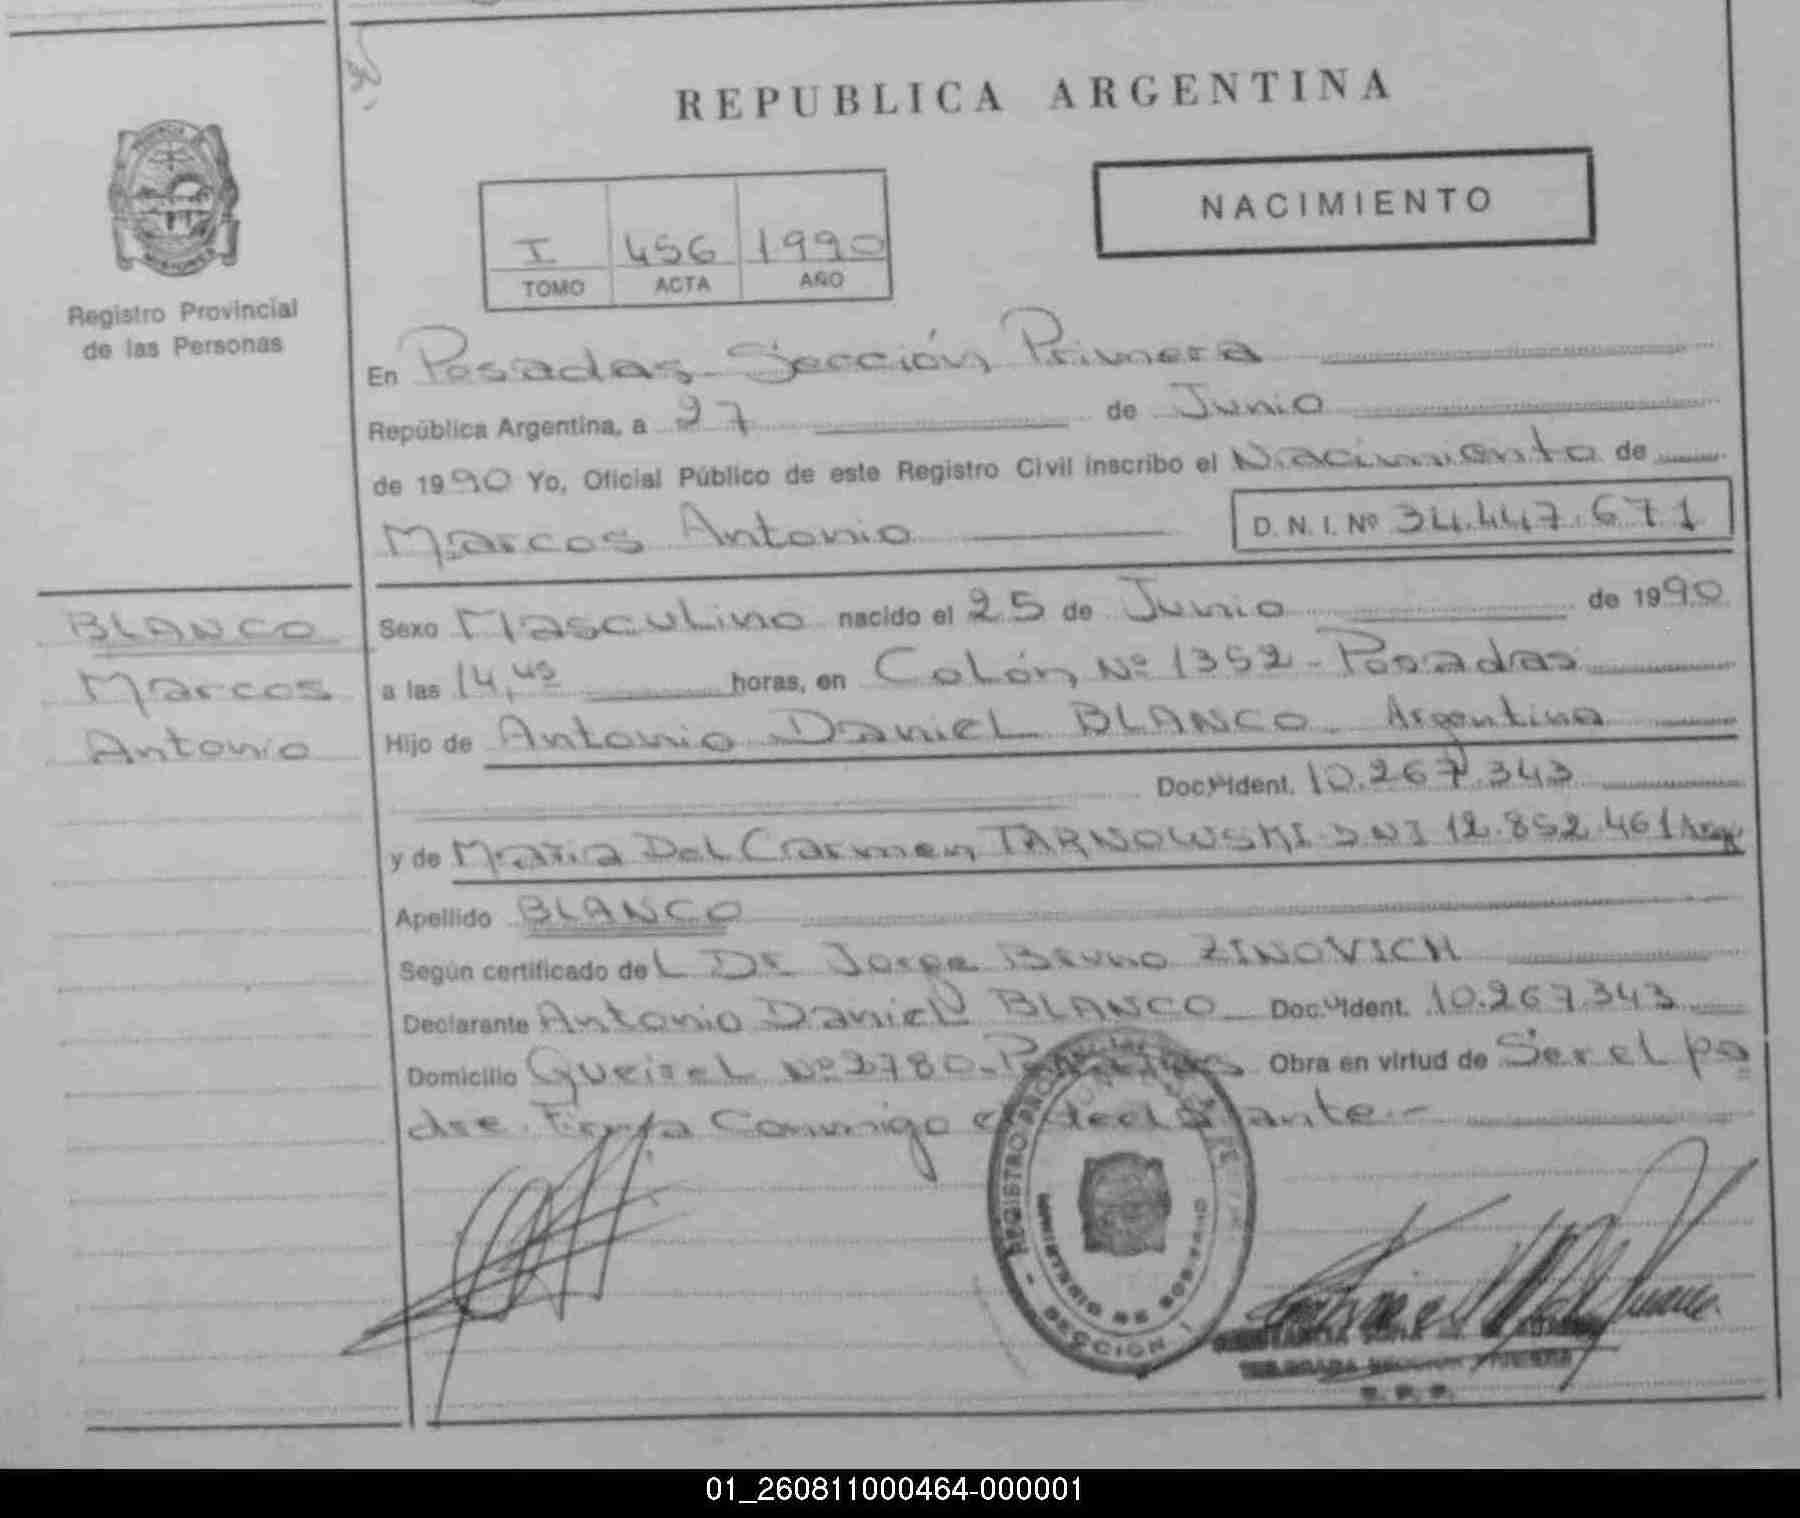 REPUBLICA ARGENTINA
NACIMIENTO
I 456 1990
TOMO ACTA AÑO
Registro Provincial
de las Personas
En Posadas Sección Primera
República Argentina, a 27 de Junio
de 1990 Yo, Oficial Público de este Registro Civil inscribo el Nacimiento de
Marcos Antonio D.N.I.Nº 34.447.671
BLANCO
Marcos
Antonio
Sexo Masculino nacido el 25 de Junio de 1990
a las 14,45 horas, en Colón Nº 1352 - Posadas
Hijo de Antonio Daniel BLANCO Argentino
Doc. Ident. 10.267.343
y de María Del Carmen TARNOWSKI DNI 12.852.461 Arg.
Apellido BLANCO
Según certificado del Dr Jorge Bruno ZINOVICH
Declarante Antonio Daniel BLANCO Doc. Ident. 10.267.343
Domicilio Queirel Nº 2780 - Posadas Obra en virtud de Ser el pa
dre. Firma Conmigo el declarante.-
REGISTRO
MINISTERIO DE GOBIERNO
SECCION 1
01_260811000464-000001